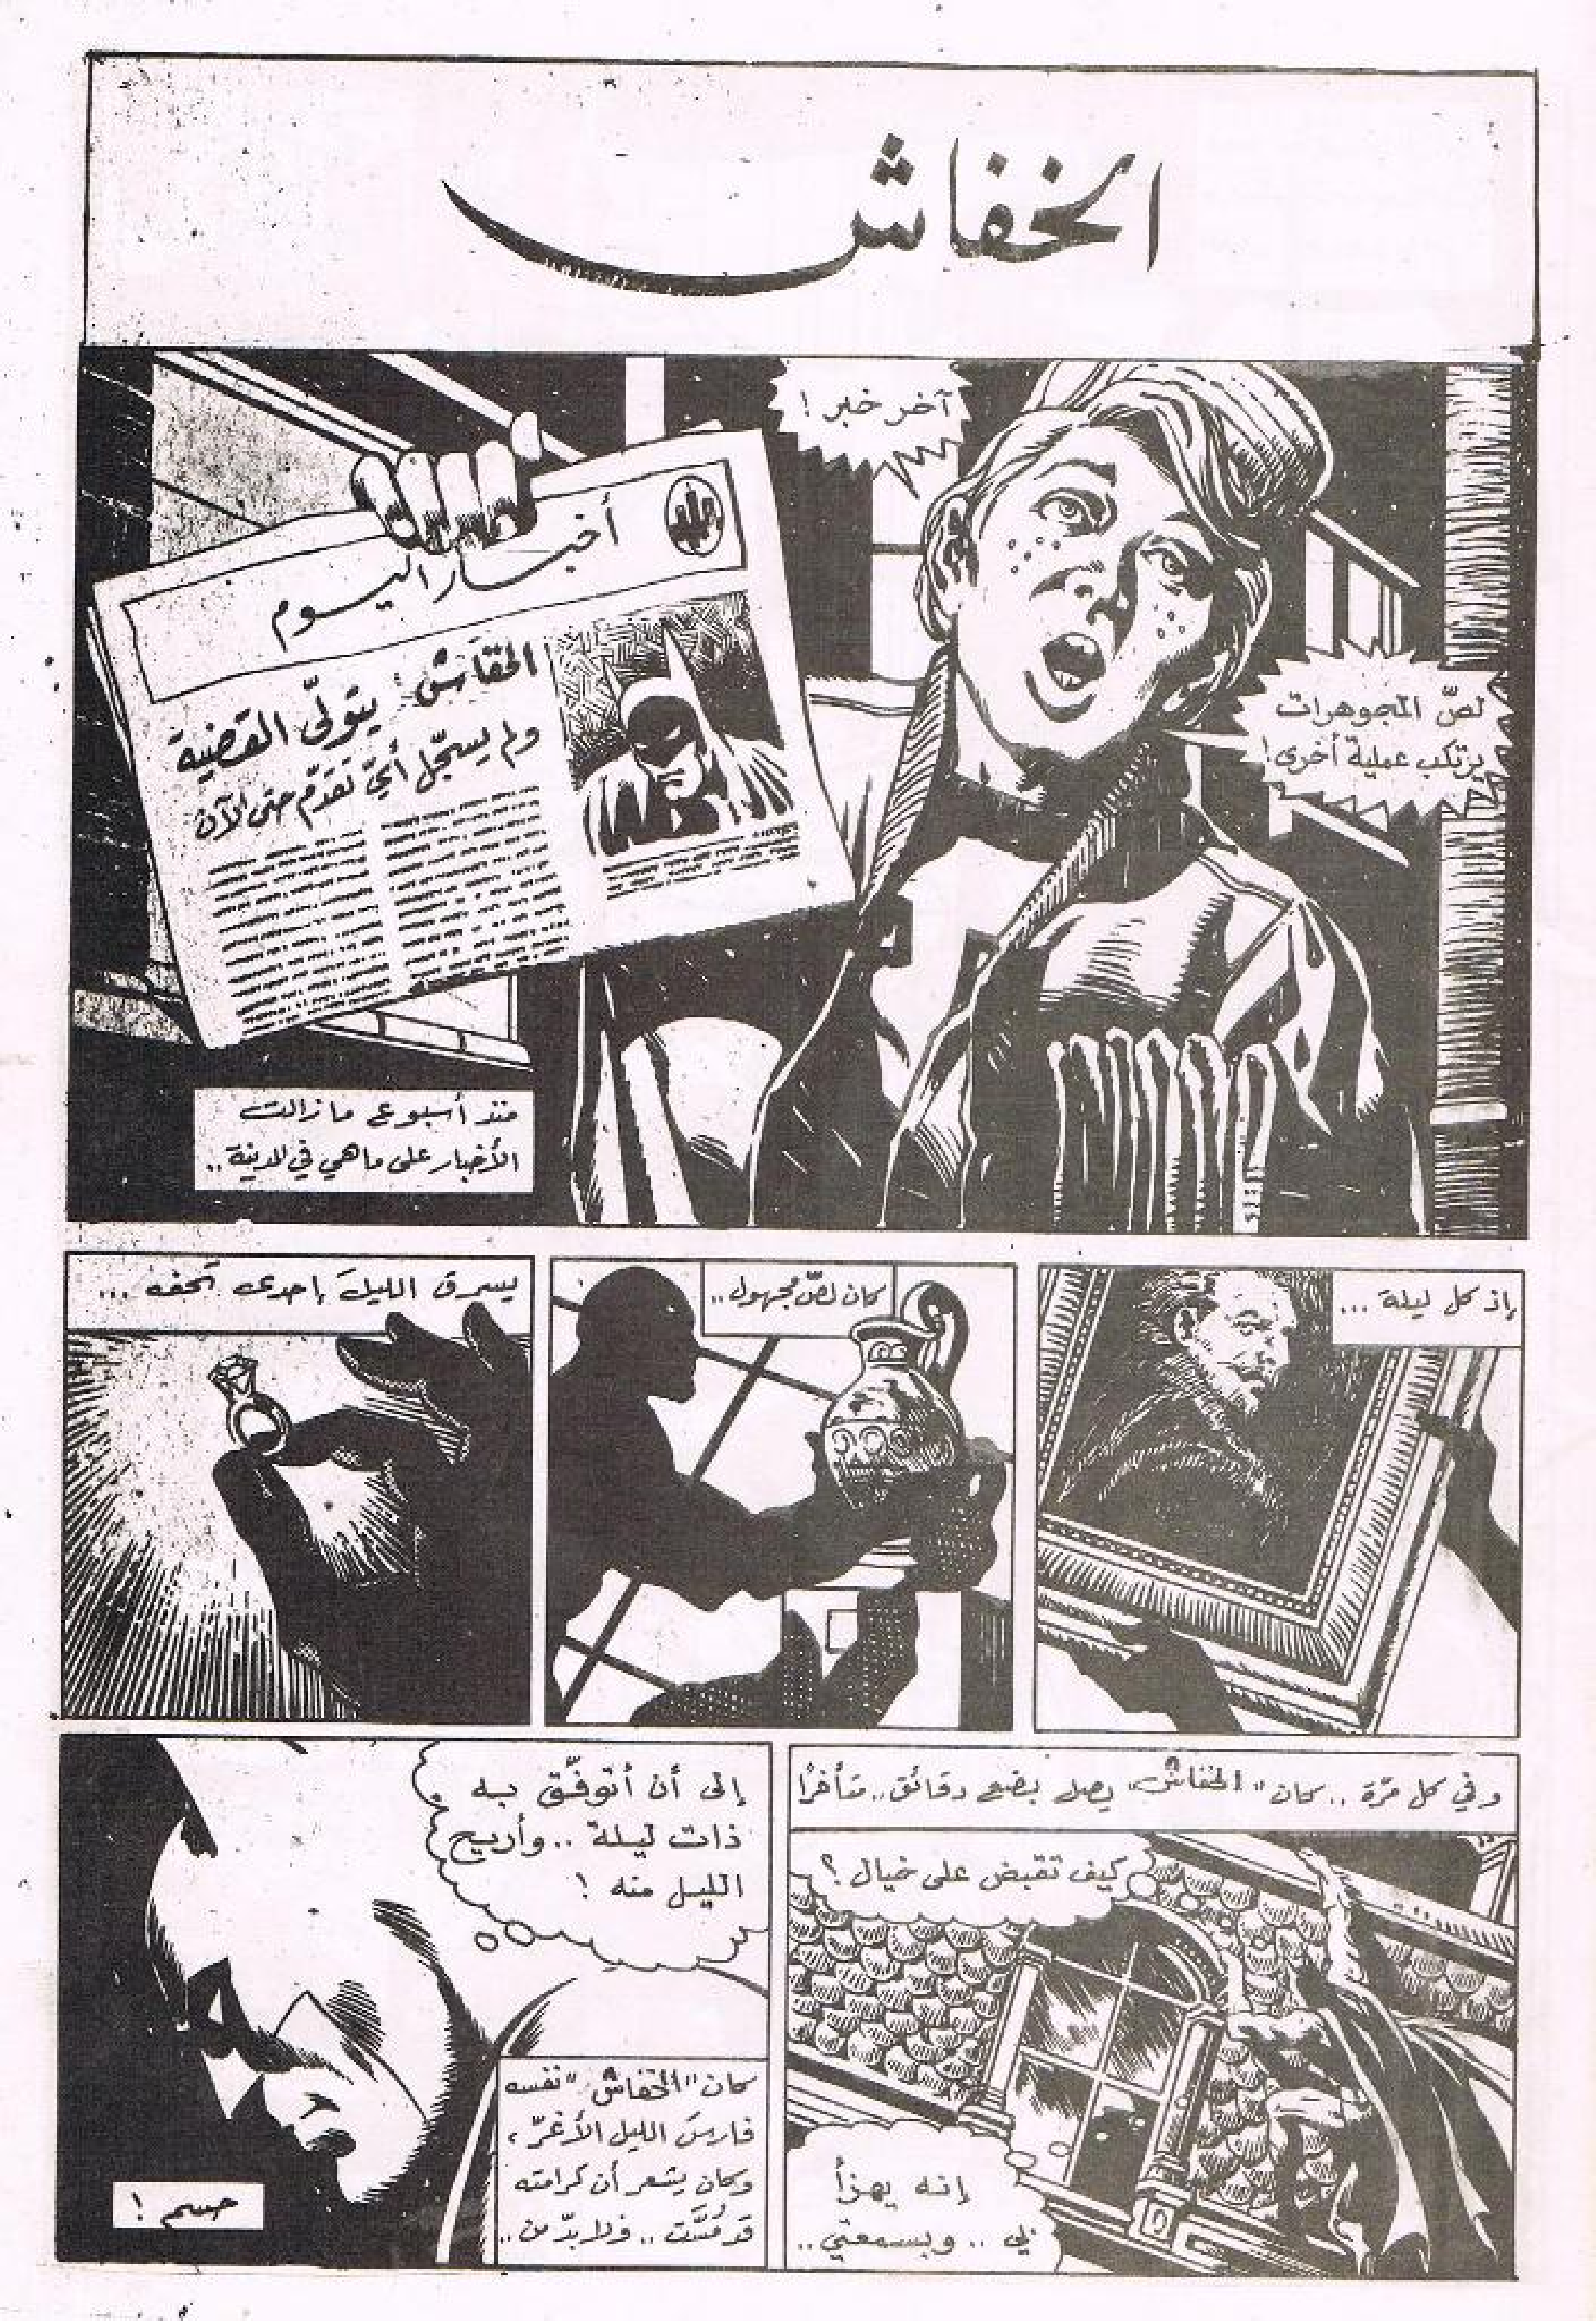 الخفاش
آخر خبر !
أخبار اليوم
الخفاش يتولّى القضية
ولم يسجّل أيّ تقدّم حتى الآن
لصّ المجوهرات
يرتكب عملية أخرى!
منذ أسبوع ما زالت
الأخبار على ما هي في المدينة ..
إذ كل ليلة ...
كان لصّ مجهول ..
يسرق الليلَ إحدى تحفه ...
وفي كل مرّة .. كان "الخفاش" يصل بضع دقائق .. متأخرًا
كيف تقبض على خيال ؟
إنه يهزأ
بي .. وبسمعتي ..
إلى أن أتوفّق به
ذات ليلة .. وأريح
الليل منه !
كان "الخفاش" نفسه
فارسَ الليل الأغرّ ،
وكان يشعر أن كرامته
قد مُسَّت .. فلا بدّ من ..
حسم !